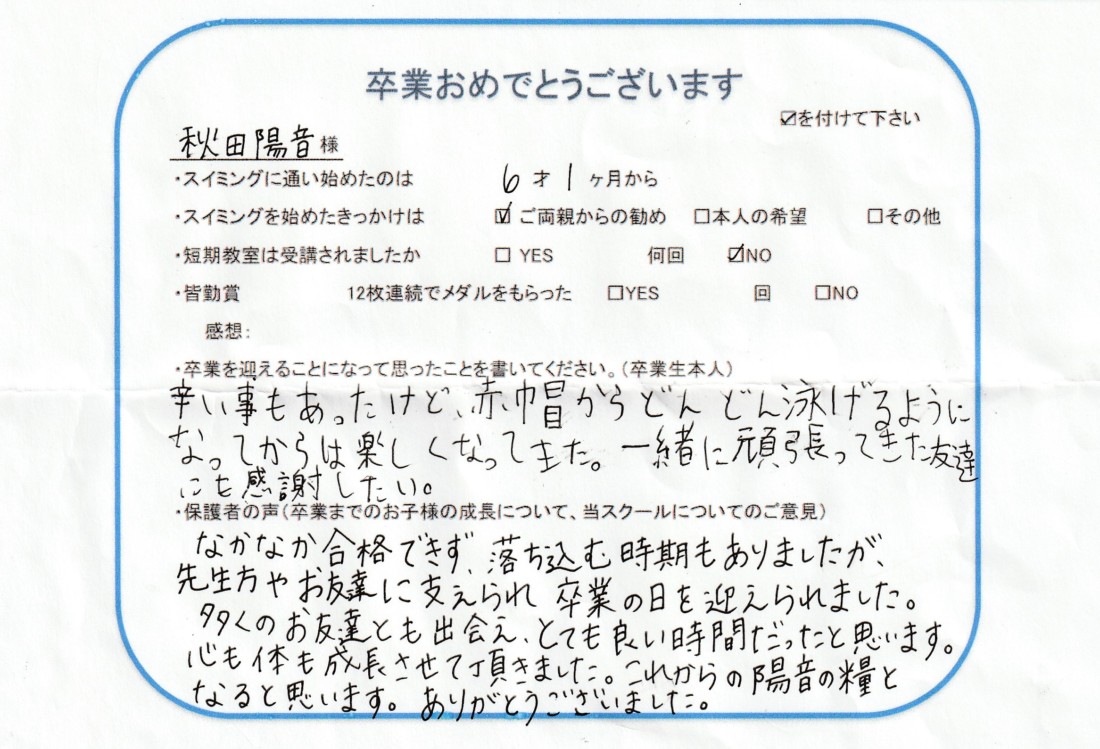 卒業おめでとうございます
☑を付けて下さい
秋田陽音様
・スイミングに通い始めたのは 6才1ヶ月から
・スイミングを始めたきっかけは ☑ご両親からの勧め □本人の希望 □その他
・短期教室は受講されましたか □YES 何回 ☑NO
・皆勤賞 12枚連続でメダルをもらった □YES 回 □NO
感想:
・卒業を迎えることになって思ったことを書いてください。(卒業生本人)
辛い事もあったけど、赤帽からどんどん泳げるように
なってからは楽しくなってきた。一緒に頑張ってきた友達
にも感謝したい。
・保護者の声(卒業までのお子様の成長について、当スクールについてのご意見)
なかなか合格できず、落ち込む時期もありましたが、
先生方やお友達に支えられ卒業の日を迎えられました。
多くのお友達とも出会え、とても良い時間だったと思います。
心も体も成長させて頂きました。これからの陽音の糧と
なると思います。ありがとうございました。